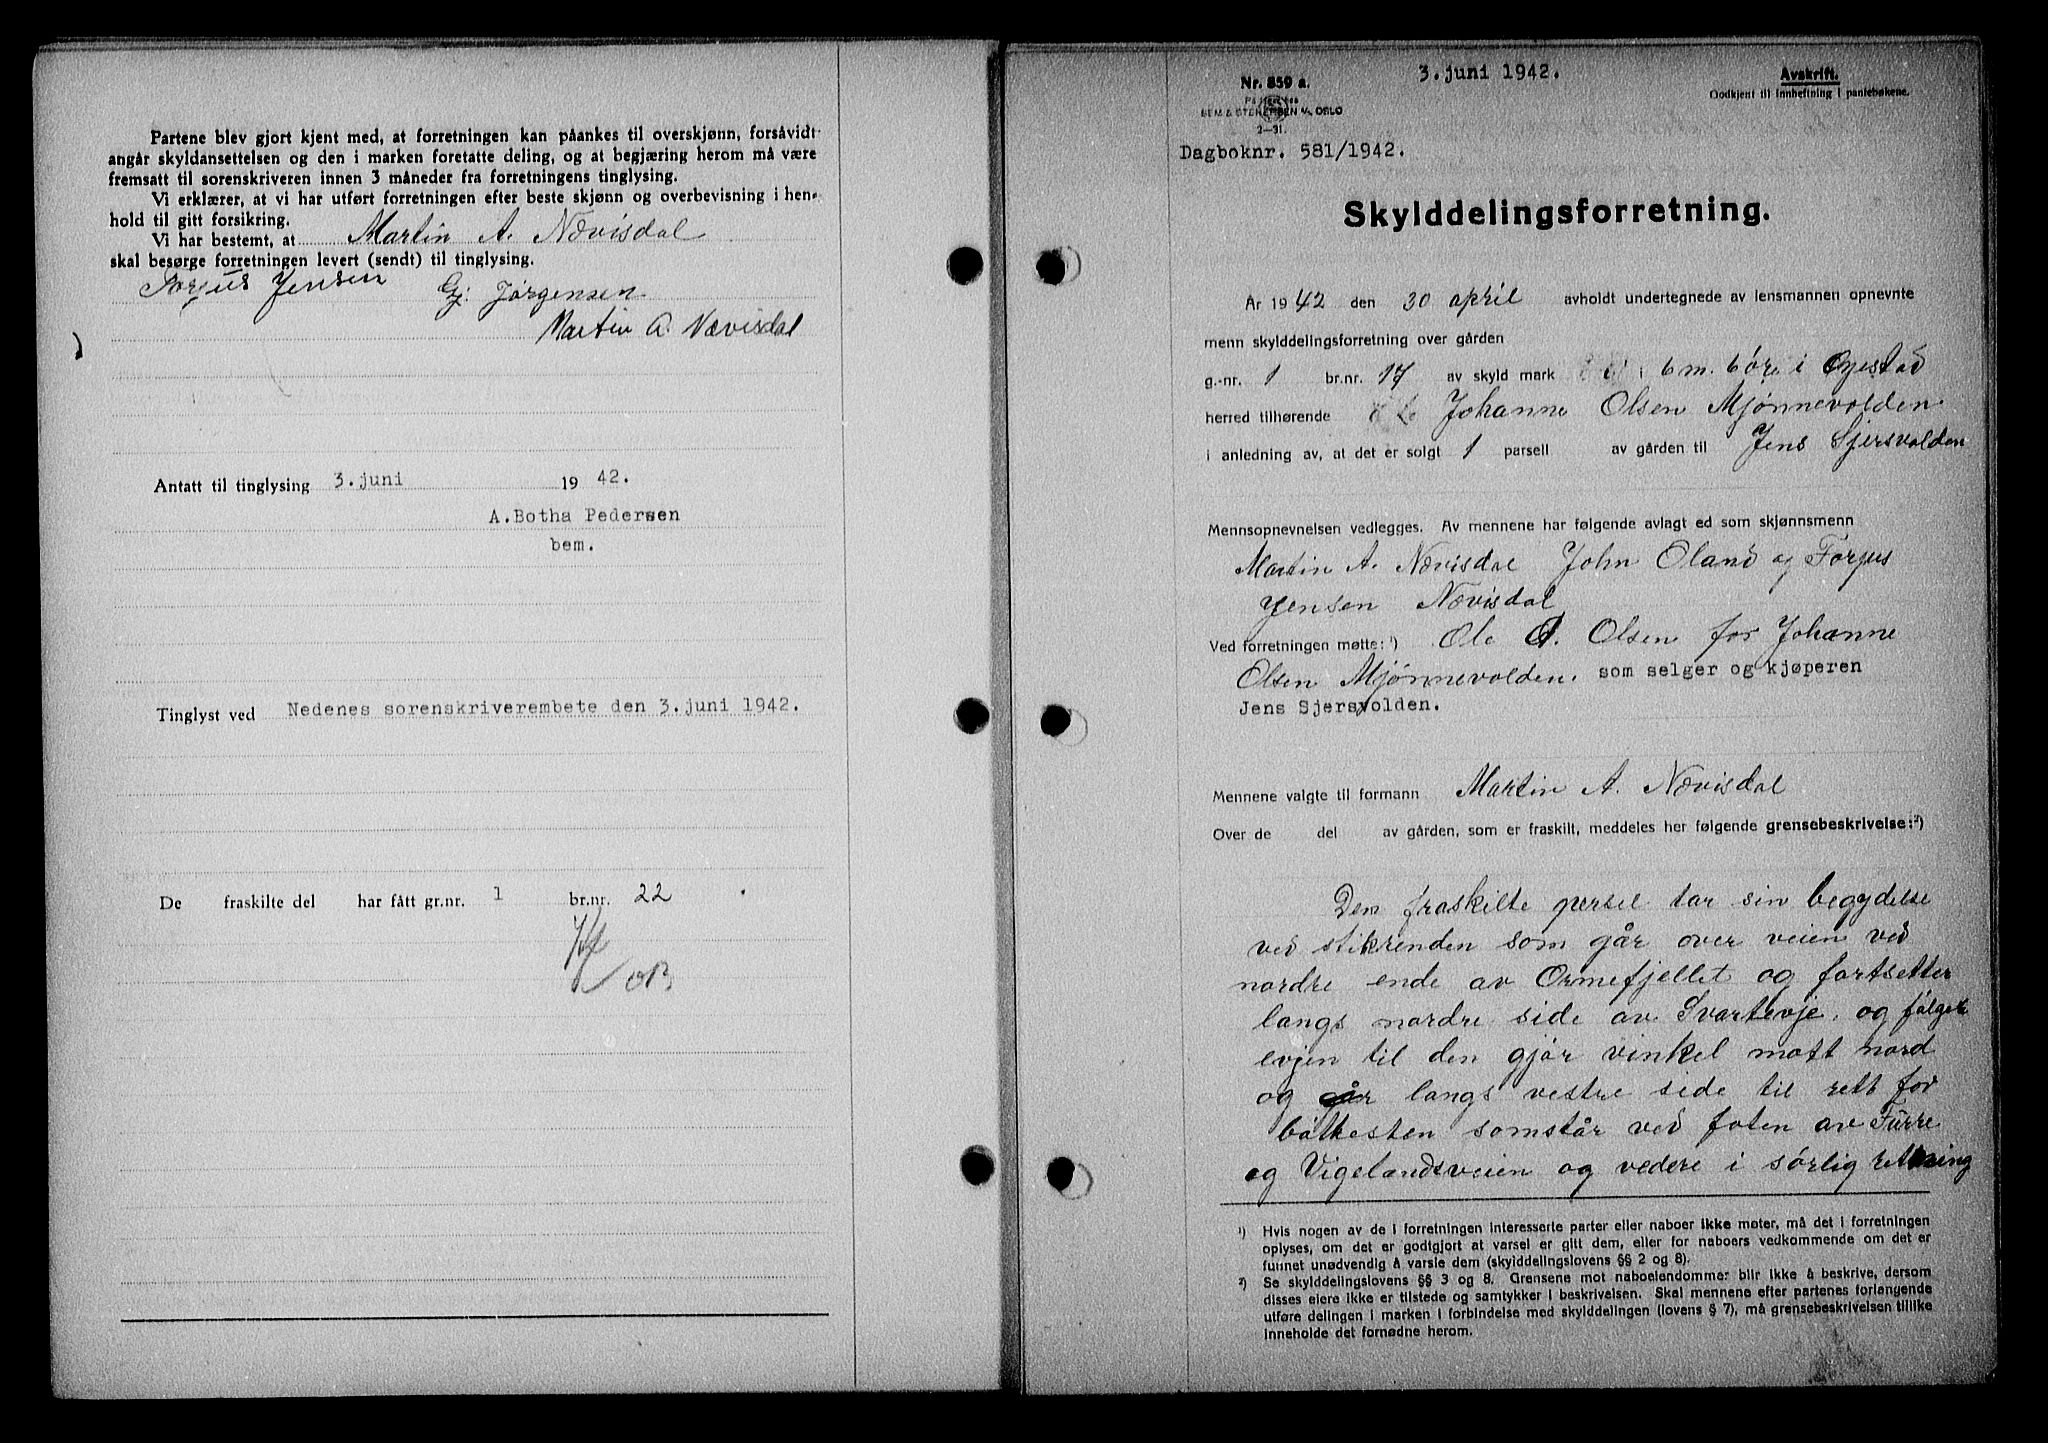 Partene blev gjort kjent med, at forretningen kan påankes til overskjønn, forsåvidt
angår skyldansettelsen og den i marken foretatte deling, og at begjæring herom må være
fremsatt til sorenskriveren innen 3 måneder fra forretningens tinglysing.
Vi erklærer, at vi har utført forretningen efter beste skjønn og overbevisning i hen-
hold til gitt forsikring.
Vi har bestemt, at Martin A. Nævisdal
skal besørge forretningen levert (sendt) til tinglysing.
Torjus Jensen Gj. Jørgensen
Martin A. Nævisdal
Antatt til tinglysing 3. juni 19 42.
A. Botha Pedersen
bem.
Tinglyst ved Nedenes sorenskriverembete den 3. juni 1942.
De fraskilte del har fått gr.nr. 1 br.nr. 22
OB
Nr. 859 a.
3. juni 1942.
Avskrift.
Godkjent til innheftning i pantebøkene.
SEM & STENERSEN A/S OSLO
2-31.
Dagboknr. 581/1942.
Skylddelingsforretning.
År 1942 den 30 april avholdt undertegnede av lensmannen opnevnte
menn skylddelingsforretning over gården
g.-nr. 1 br.nr. 17 av skyld mark 6 m. 6 øre i Øyestad
herred tilhørende Johanne Olsen Mjønnevolden
i anledning av, at det er solgt 1 parsell av gården til Jens Sjersvolden
Mennsopnevnelsen vedlegges. Av mennene har følgende avlagt ed som skjønnsmenn
Martin A. Nævisdal John Øland og Torjus
Jensen Nævisdal
Ved forretningen møtte: ¹) Ole O. Olsen for Johanne
Olsen Mjønnevolden. som selger og kjøperen
Jens Sjersvolden.
Mennene valgte til formann Martin A. Nævisdal
Over de del av gården, som er fraskilt, meddeles her følgende grensebeskrivelse: ²)
Den fraskilte persel tar sin begydelse
ved stikrenden som går over veien ved
nordre ende av Ormefjellet og fortsetter
langs nordre side av Svartevje, og følger
evjen til den gjør vinkel mott nord
og går langs vestre side til rett for
båtkesten somstår ved foten av Furre
og Vigelandsveien og vedere i sørlig rettning
¹) Hvis nogen av de i forretningen interesserte parter eller naboer ikke møter, må det i forretningen
oplyses, om det er godtgjort at varsel er gitt dem, eller for naboers vedkommende om det er
funnet unødvendig å varsle dem (skylddelingslovens §§ 2 og 8).
²) Se skylddelingslovens §§ 3 og 8. Grensene mot naboeiendommer blir ikke å beskrive, dersom
disses eiere ikke er tilstede og samtykker i beskrivelsen. Skal mennene efter partenes forlangende
utføre delingen i marken i forbindelse med skylddelingen (lovens § 7), må grensebeskrivelsen tillike
inneholde det fornødne herom.